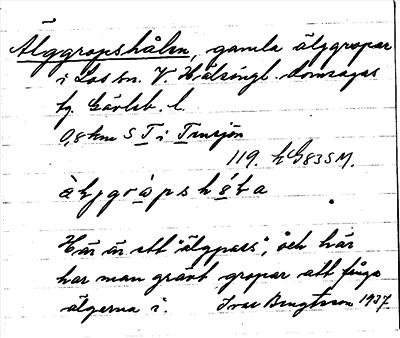 Älggropshålen, gamla älggropar
i Los sn. V. Hälsingl. domsagas
fg. Gävleb. l.
0,8 km S T i Tensjön
119. hG83SM.
Här är ett "älgpass", och här
har man grävt gropar att fånga
älgerna i. Ivar Bengtsson 1937